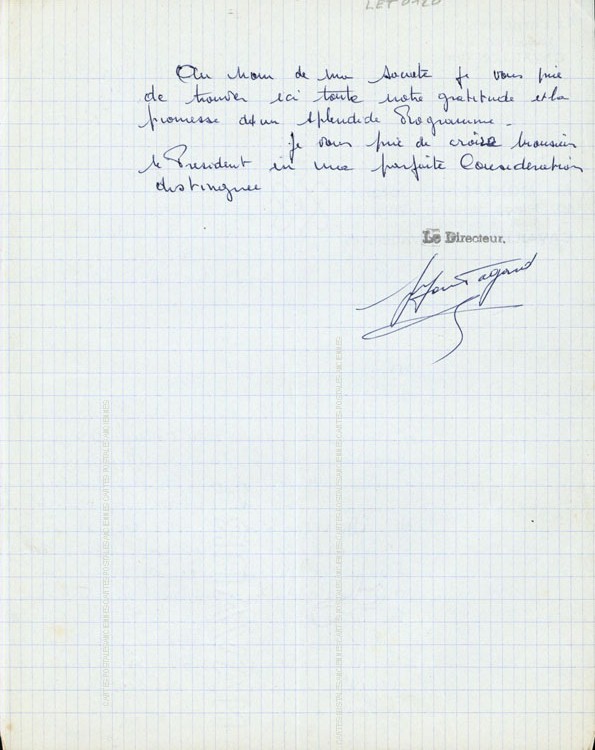 LET 0120
Au Nom de ma Societe je vous prie
de trouver ici toute notre gratitude et la
promesse d'un splendide Programme.
Je vous prie de croire Monsieur
le President en ma parfaite Consideration
distinguee
Le Directeur.
CARTES-POSTALES-ANCIENNES
CARTES-POSTALES-ANCIENNES